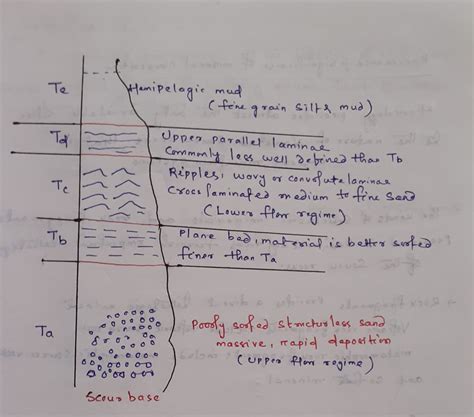 Te
Hemipelagic mud
(fine grain silt & mud)
Td
Upper parallel laminae
Commonly less well defined than Tb
Tc
Ripples, wavy or convolute laminae
Cross laminated medium to fine sand
(Lower flow regime)
Tb
Plane bed, material is better sorfed
finer than Ta
Ta
Poorly sorfed structurless sand
massive, rapid deposition
(upper flow regime)
Scour base